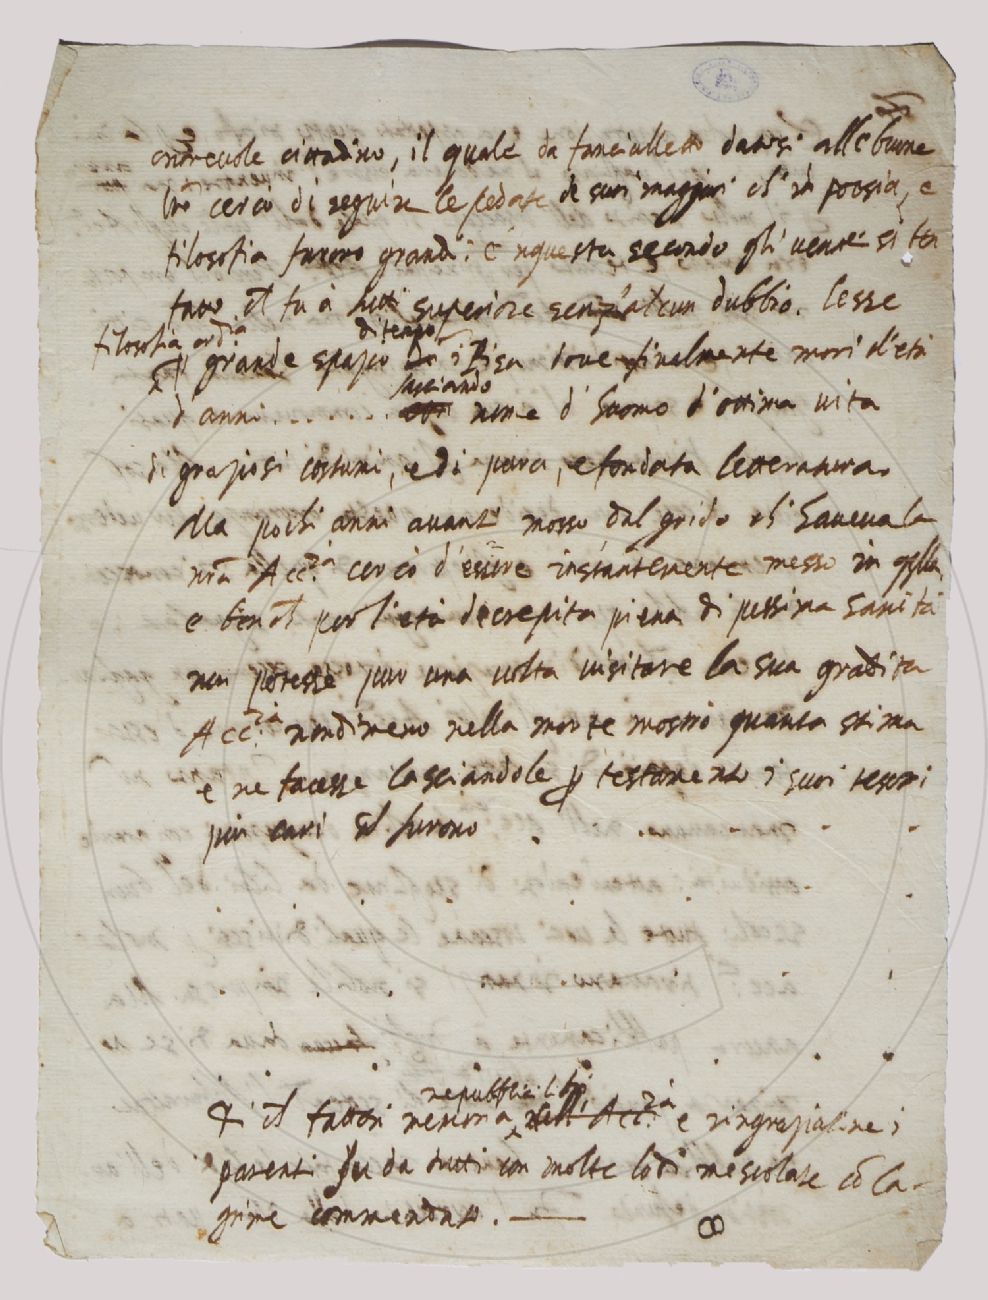 onorevole cittadino, il quale da fanciulletto datosi alle buone
lre cercò di seguire le pedate de suoi maggiori ch' in poesia, e
filosofia furono grandi: e 'n questa secondo gli venne si fat
tato ch fu à tutti superiore senz'alcun dubbio. Lesse
filosofia ord.ria
grande spazio di tempo i Pisa dove finalmente morì d'età
d'anni ........ lasciando nome d' huomo d'ottima vita
di graziosi costumi, e di pura, e fondata letteratura.
Ma pochi anni avanti mosso dal grido ch' haveva la
nrã Acc.ia cercò d'essere instantemente messo in qlla,
e bench per l'età decrepita piena di pessima sanità
non potesse pur una volta visitare la sua gradita
Acc.ia nondimeno nella morte mostrò quanta stima
e ne facesse lasciandole p testamento i suoi tesori
più cari ch furono . . . . .
repubblica
& ch fattõn memoria nell' Acc.ia e ringraziatine i
parenti fu da tutti con molte lodi mescolate cõ la-
grime commendato. ——
8